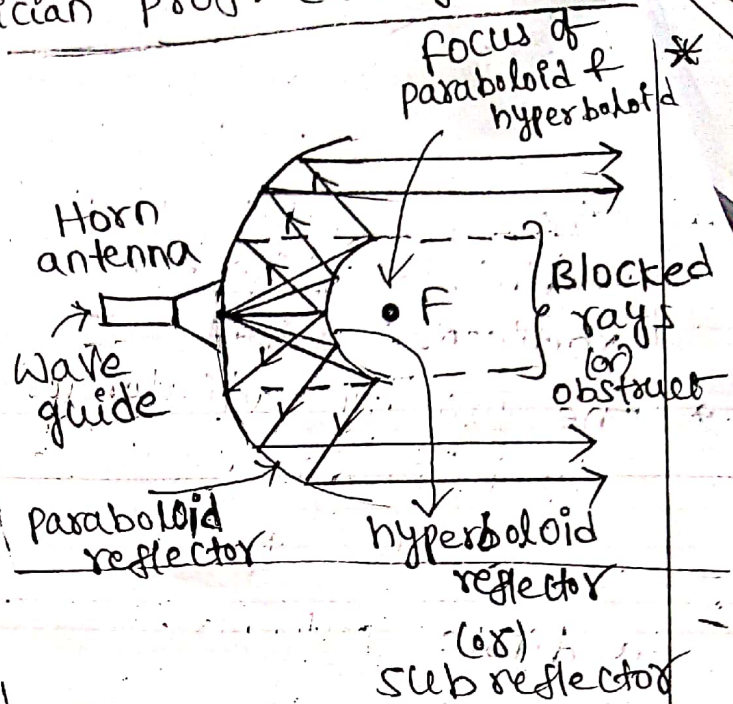 ician
focus of
paraboloid &
hyperboloid
*
Horn
antenna
F
Blocked
rays
(or)
obstruct
Wave
guide
paraboloid
reflector
hyperboloid
reflector
(or)
sub reflector